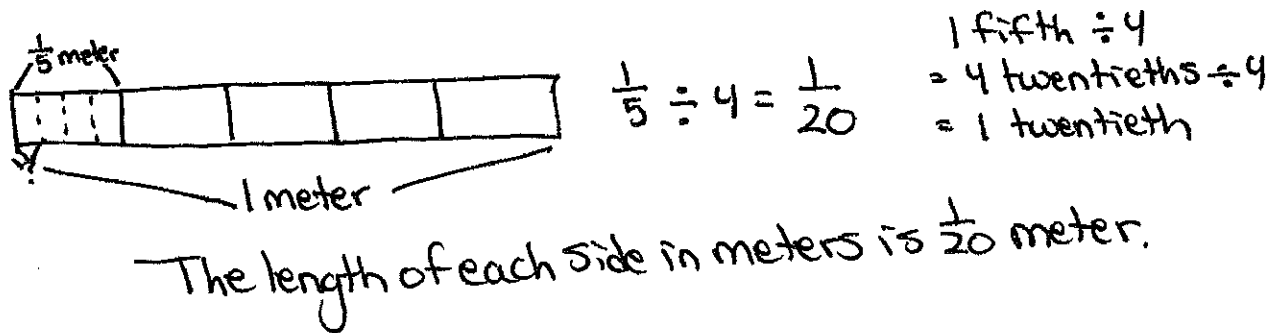 1/5 meter
?
1 meter
1/5 ÷ 4 = 1/20
1 fifth ÷ 4
= 4 twentieths ÷ 4
= 1 twentieth
The length of each side in meters is 1/20 meter.